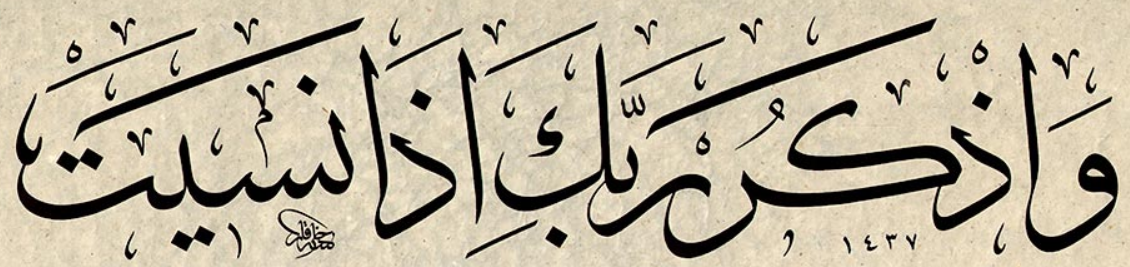 وَاذْكُرْ رَبَّكَ إِذَا نَسِيتَ
١٤٣٧